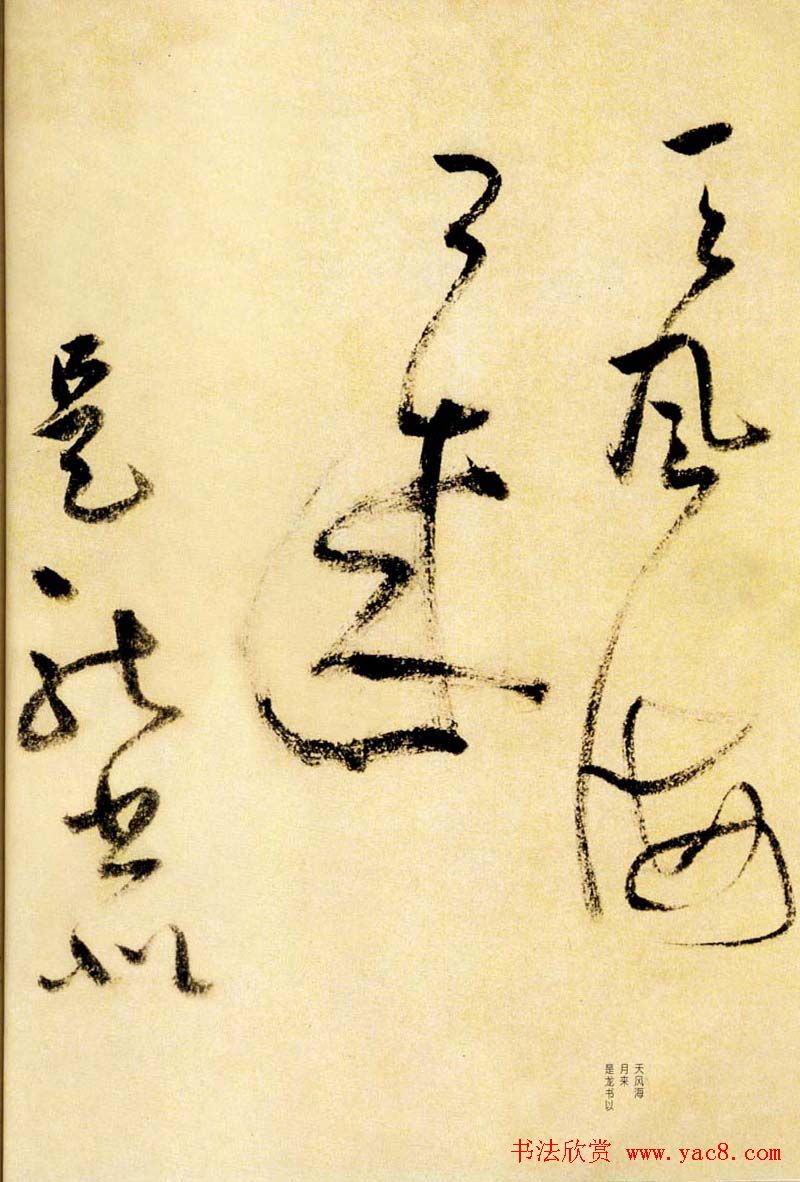 天風海
月來
是龍書以
天风海
月来
是龙书以
书法欣赏 www.yac8.com